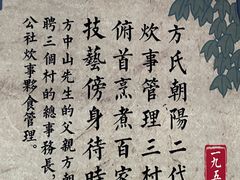 方氏朝陽二代
炊事管理三村
俯首烹煮百家
技藝傍身待時
方中山先生的父親方朝
聘三個村的總事務長，
公社炊事夥食管理。
一九五